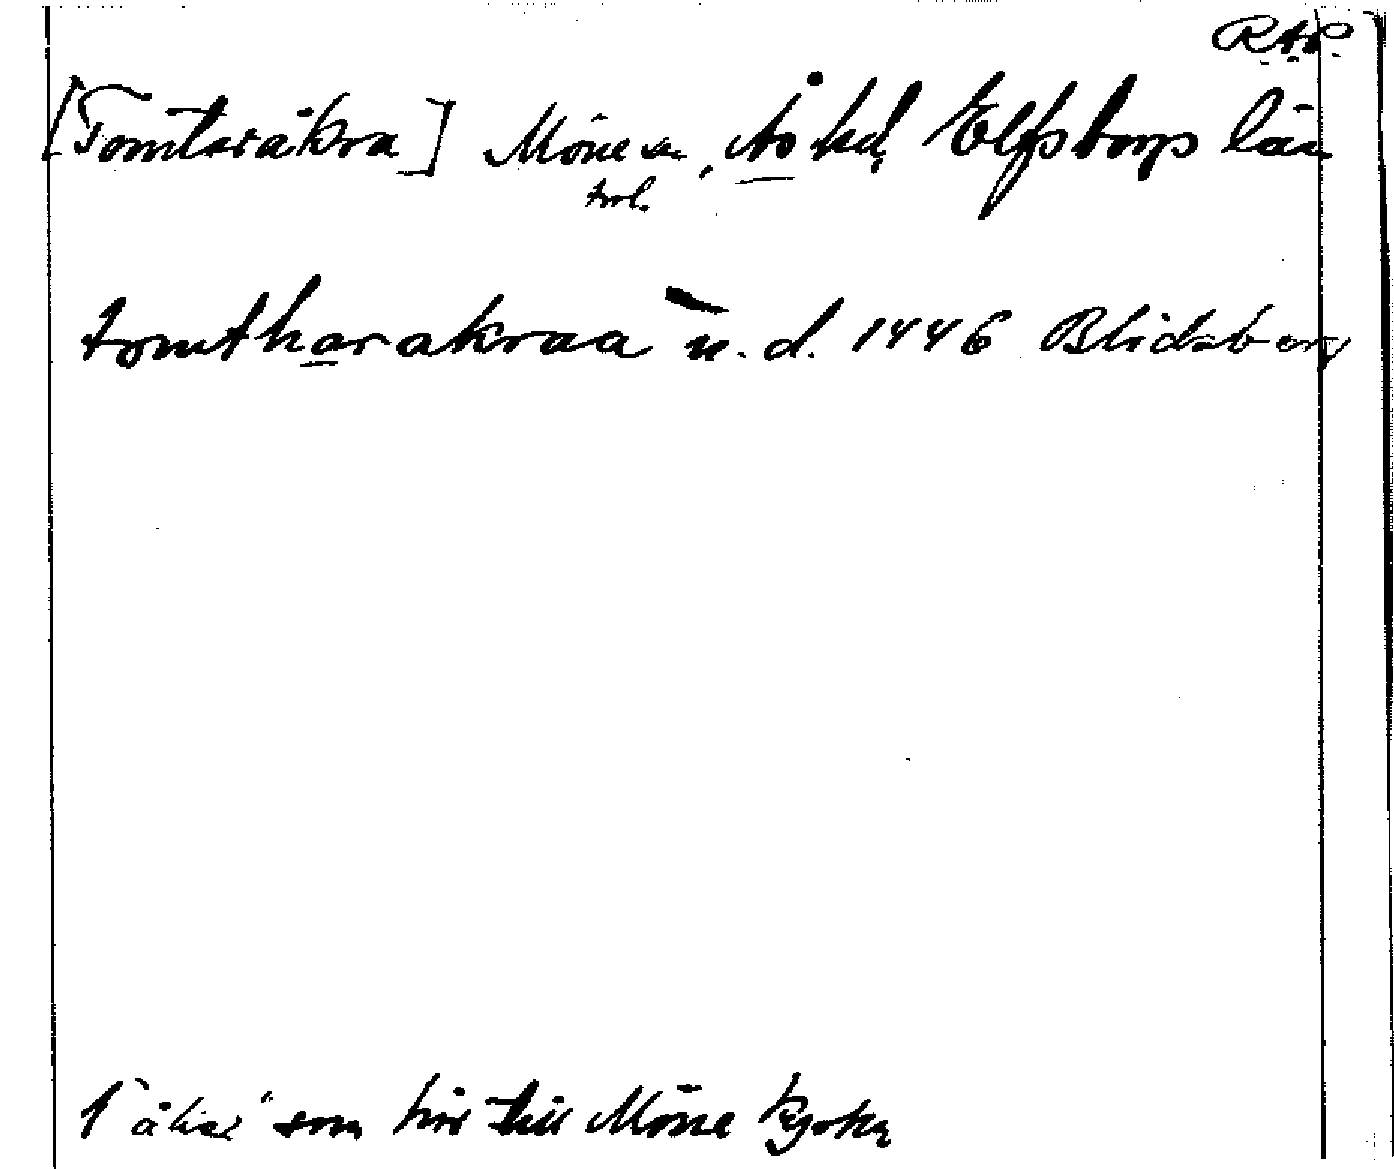 R.A.P.
[Tomtaråkra] Möne sn, Ås hd, Elfsborgs län
trol.
tomtharakraa u. d. 1446 Blidsberg
1 "åker" som hör till Möne kyrka